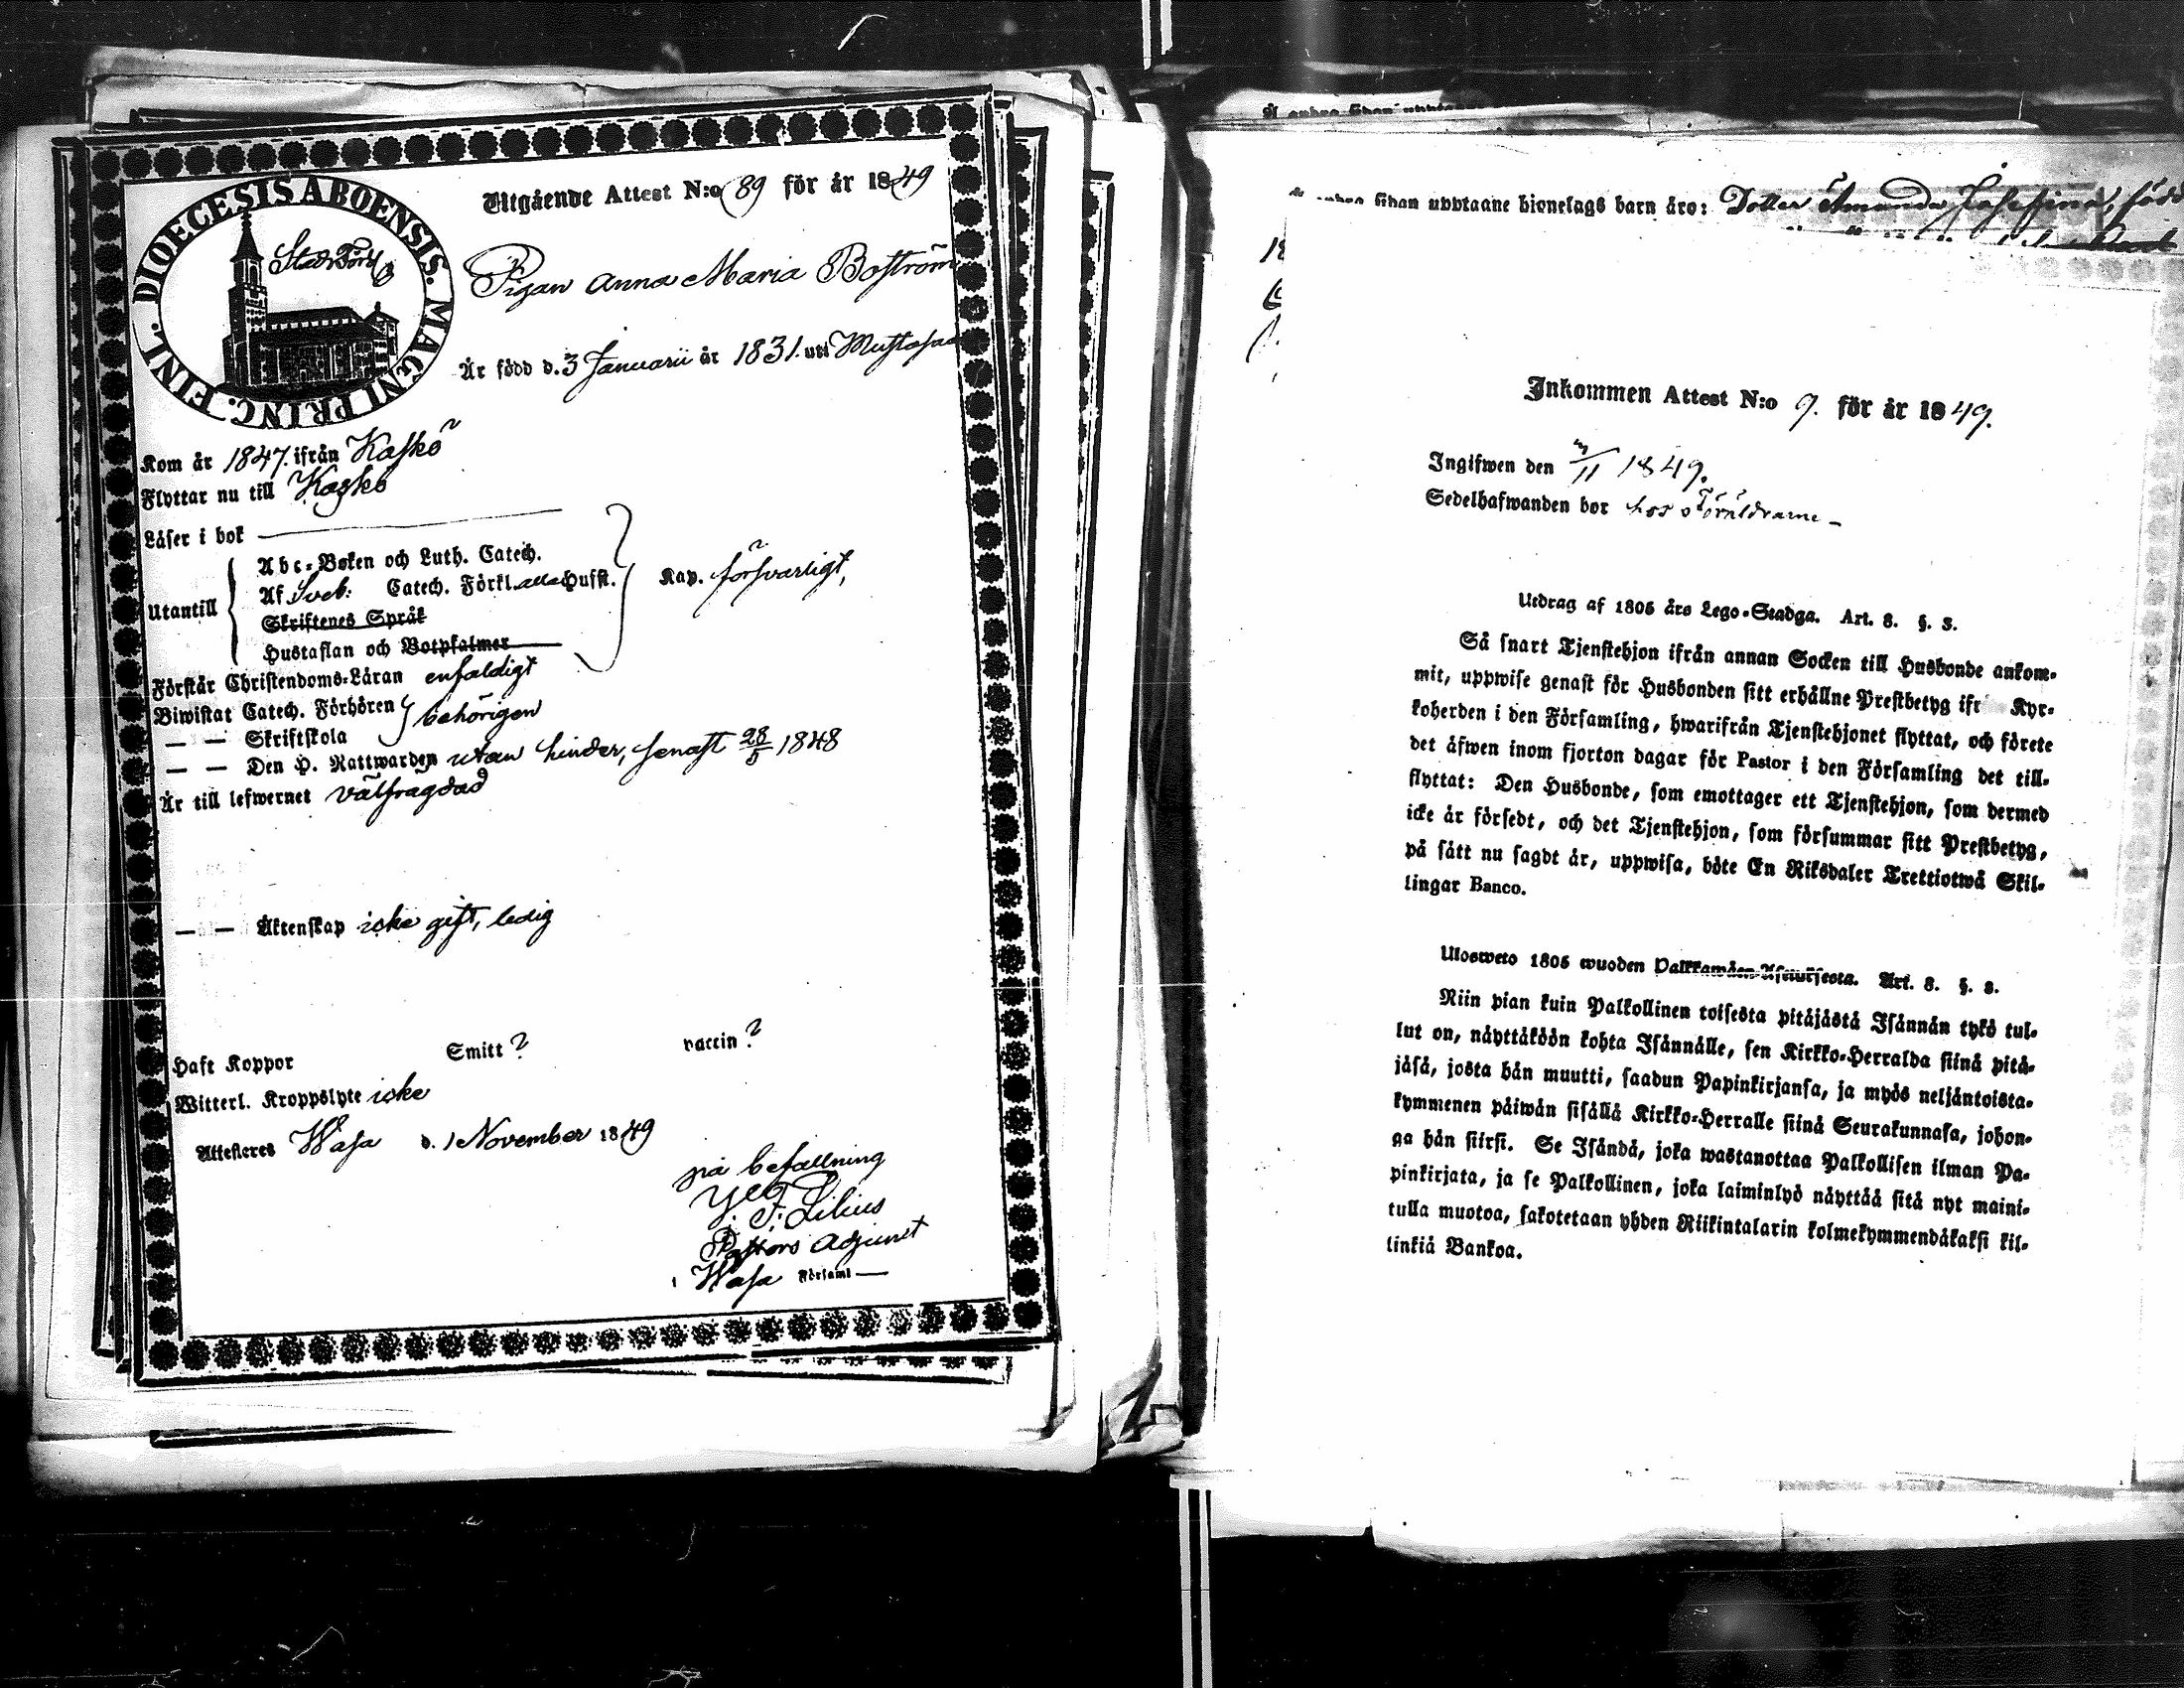 DIOECESIS ABOENSIS. MAGNI PRINC. FINL.
Utgående Attest N:o 89 för år 1849
Pigan Anna Maria Boström
Är född d. 3 Januarii år 1831. uti Mustasaa
Kom år 1847. ifrån Kaskö
Flyttar nu till Kaskö
Läser i bok
Utantill
Abc-Boken och Luth. Catech.
Af Sveb: Catech. Förkl. alla Husst.
Skriftenes Språk
Hustaflan och Botpsalmer
Kap. försvarligt,
Förstår Christendoms-Läran enfaldigt
Biwistat Catech. Förhören
— — Skriftskola
behörigen
— — Den H. Nattwarden utan hinder, senast 28/5 1848
Är till lefwernet välfrägdad
— — Äktenskap icke gift, ledig
Haft Koppor Smitt ? vaccin ?
Witterl. Kroppslyte icke
Attesteras Wasa d. 1 November 1849
på befallning
F. Lilius
Pastors Adjunct
i Wasa Församl
Å andra sidan upptagne hionelags barn äro: Dotter Amanda Josefina, född
Inkommen Attest N:o 9. för år 1849.
Ingifwen den 3/11 1849.
Sedelhafwanden bor hos Föräldrarne -
Utdrag af 1805 års Lego-Stadga. Art. 8. §. 3.
Så snart Tjenstehjon ifrån annan Socken till Husbonde ankom-
mit, uppwise genast för Husbonden sitt erhållne Prestbetyg ifr Kyr-
koherden i den Församling, hwarifrån Tjenstehjonet flyttat, och förete
det äfwen inom fjorton dagar för Pastor i den Församling det till-
flyttat: Den Husbonde, som emottager ett Tjenstehjon, som dermed
icke är försedt, och det Tjenstehjon, som försummar sitt Prestbetyg,
på sätt nu sagdt är, uppwisa, böte En Riksdaler Trettiotwå Skil-
lingar Banco.
Uloswеto 1805 wuoden Palkkawäen-Asetuksesta. Art. 8. §. 3.
Niin pian kuin Palkollinen toisesta pitäjästä Isännän tykö tul-
lut on, näyttäköön kohta Isännälle, sen Kirkko-Herralda siinä pitä-
jäsä, josta hän muutti, saadun Papinkirjansa, ja myös neljäntoista-
kymmenen päiwän sisällä Kirkko-Herralle siinä Seurakunnasa, johon-
ga hän siirsi. Se Isändä, joka wastanottaa Palkollisen ilman Pa-
pinkirjata, ja se Palkollinen, joka laiminlyö näyttää sitä nyt maini-
tulla muotoa, sakotetaan yhden Riikintalarin kolmekymmendäkaksi kil-
linkiä Bankoa.